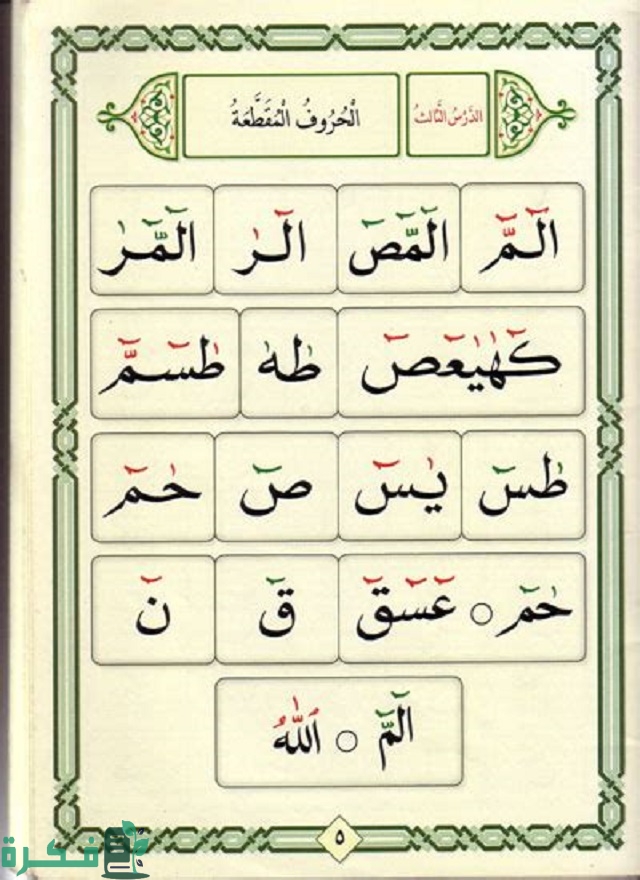 الدَّرْسُ الثَّالِثُ الْحُرُوفُ الْمُقَطَّعَةُ
الٓمّٓ الٓمّٓصٓ الٓرٰ الٓمّٓرٰ
كٓهٰيٰعٓصٓ طٰهٰ طٰسٓمّٓ
طٰسٓ يٰسٓ صٓ حٰمٓ
حٰمٓ ○ عٓسٓقٓ قٓ نٓ
الٓمّٓ ○ اللّٰهُ
٥
فكرة